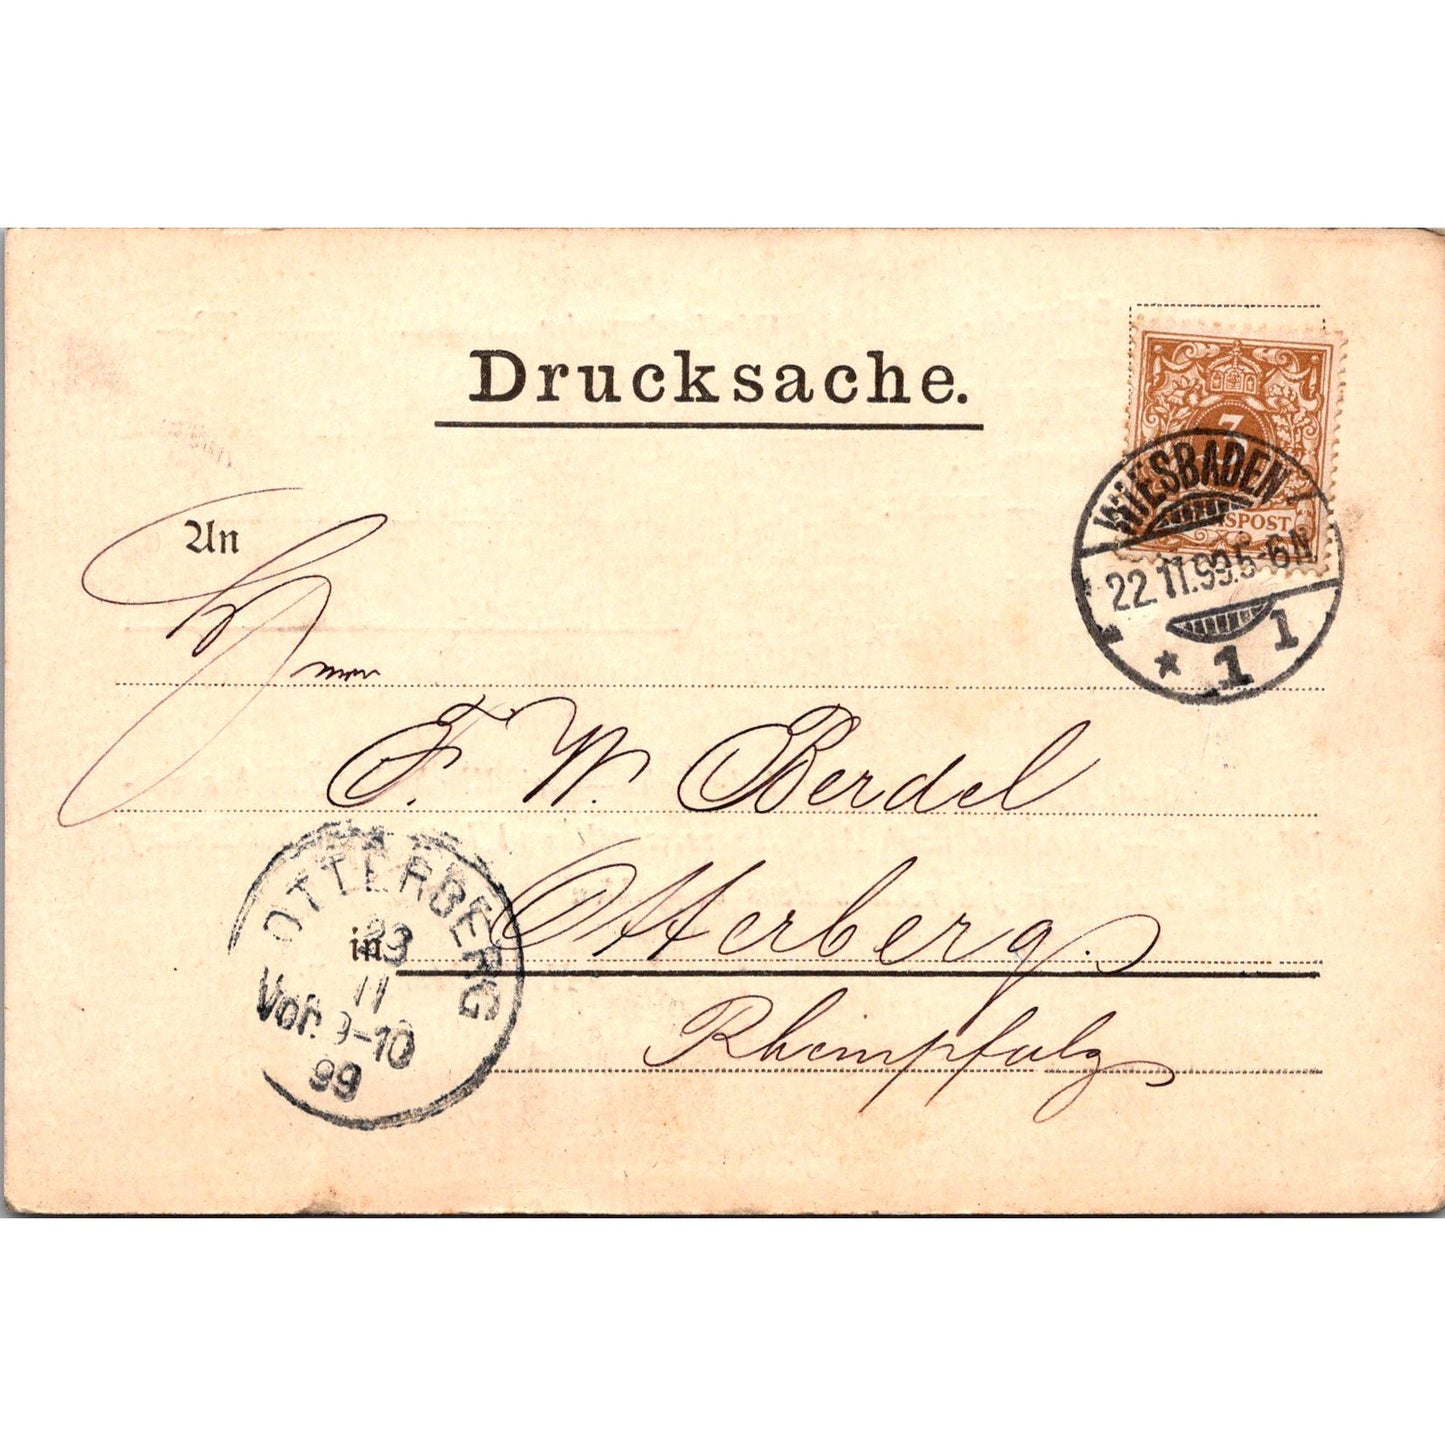 Drucksache.
3
WIESBADEN
SPOST
22.11.99.5-6N
* 1 1
An
F. W. Berdel
OTTERBERG
in Otterberg.
23
11
Vor. 9-10
99
Rheinpfalz